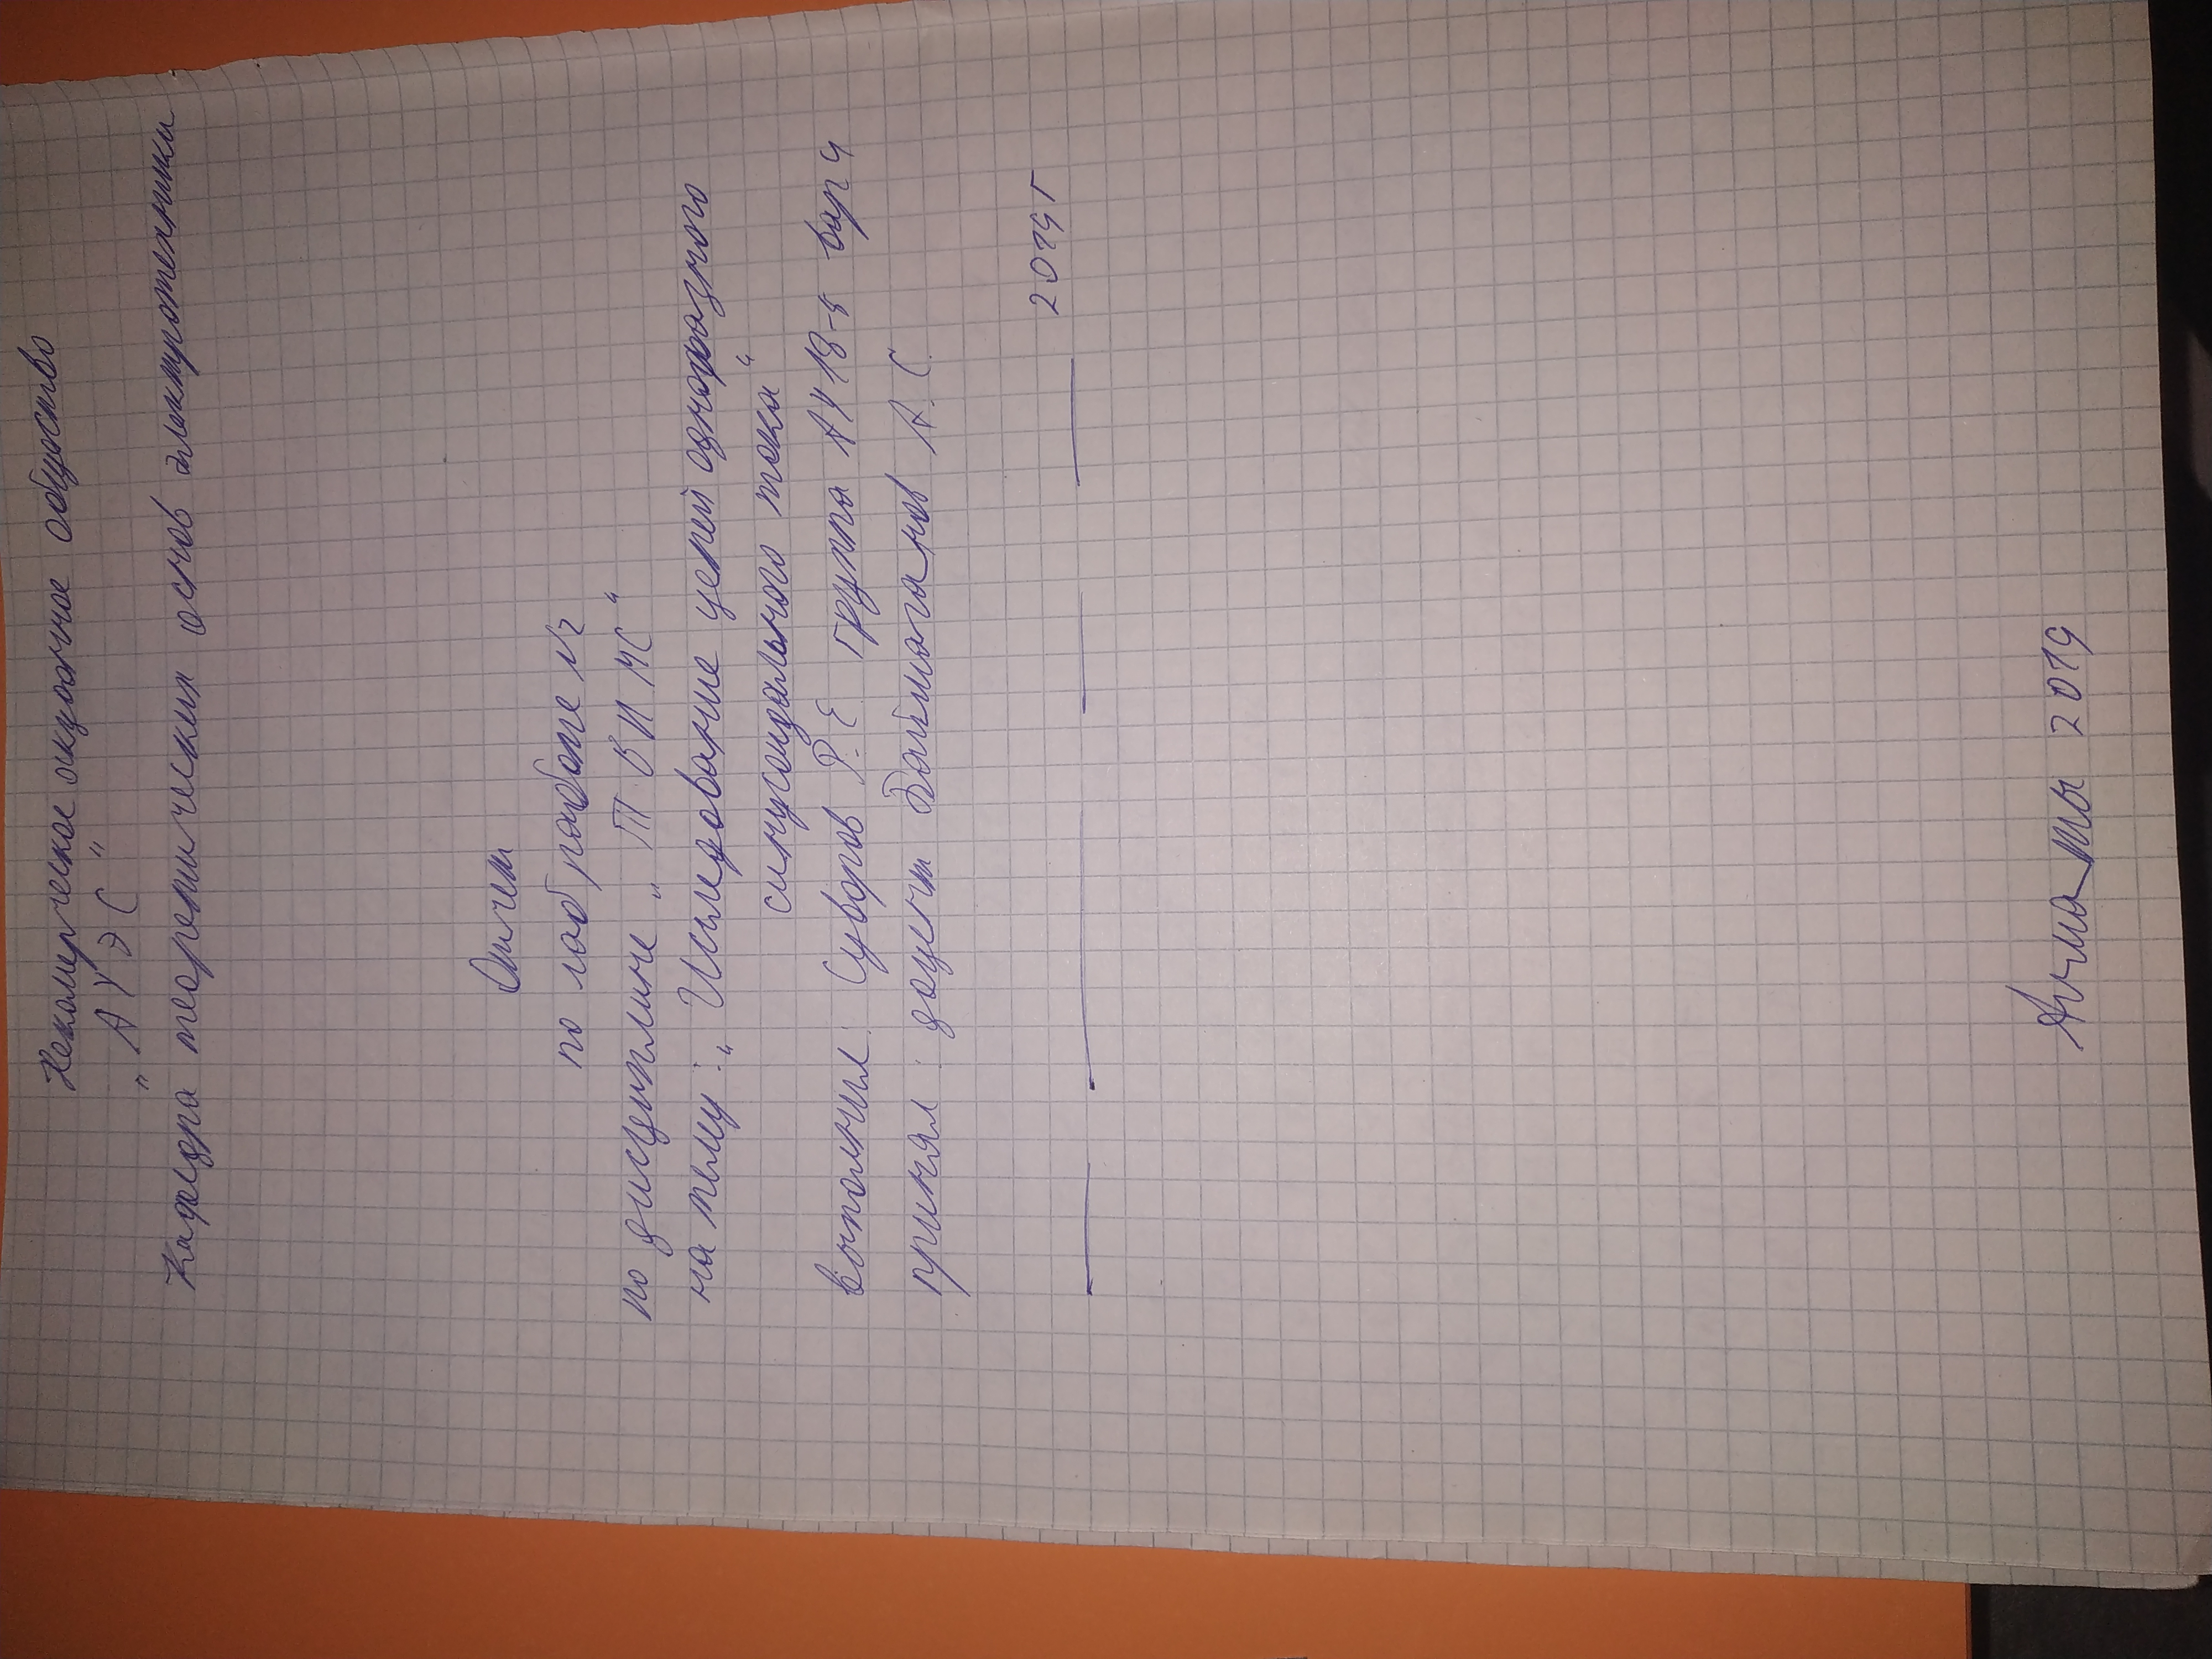 Некомерческое акционное общество
„АУЭС“
Кафедра теоретических основ электротехники
Отчет
по лаб работе №2
по дисциплине „ТВПМС“
на тему: „Исследование цепей однофазного
синусоидального тока“
выполнил: Суворов Р.Е. группа АУ18-8 вар 4
принял: доцент Баймаганов А.С.
2019г
Алматы 2019